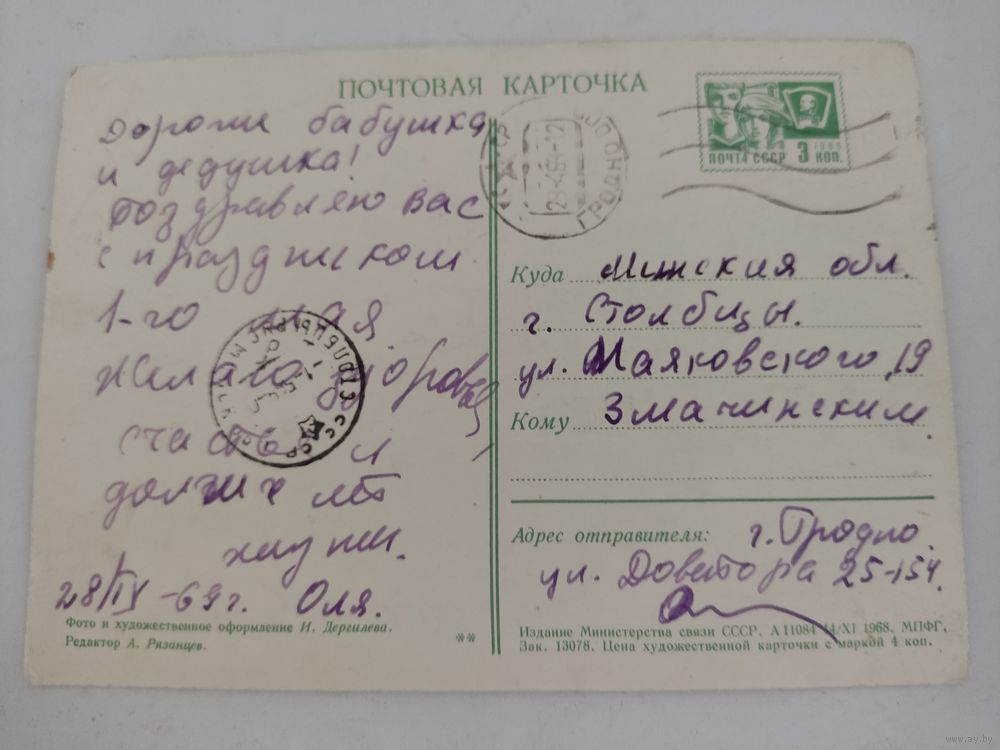 ПОЧТОВАЯ КАРТОЧКА
Дороги бабушка
и дедушка!
Поздравляю вас
с праздником
1-го мая
желаю здоровья,
счастья и
долгих лет
жизни.
28/IV-69г. Оля.
Фото и художественное оформление И. Дергилева.
Редактор А. Рязанцев.
**
ПОЧТА СССР 3 КОП.
1966
ГРОДНО
Куда Минская обл.
г. Столбцы.
ул. Маяковского, 19
Кому Змачинским
Адрес отправителя: г. Гродно.
ул. Доватора 25-154.
Издание Министерства связи СССР. А 11084 14/XI 1968. МПФГ.
Зак. 13078. Цена художественной карточки с маркой 4 коп.
www.ay.by